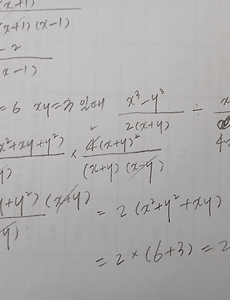 (x+1)
(x+1)(x-1)
-2
(x-1)
=6 xy=3 일때 x³-y³ / 2(x+y) ÷ x
x²+xy+y²) × 4(x+y)² / (x+y)(x-y)
+y²)(x+y) = 2(x²+y²+xy)
y)
=2×(6+3)=2